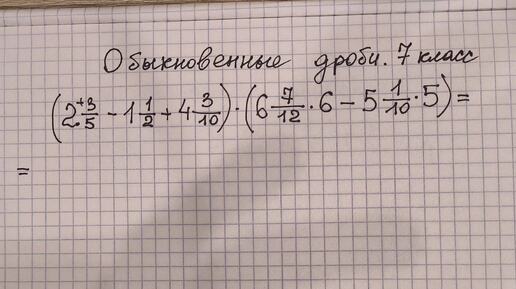 Обыкновенные дроби. 7 класс
(2 3/5 − 1 1/2 + 4 3/10) · (6 7/12 · 6 − 5 1/10 · 5) =
=